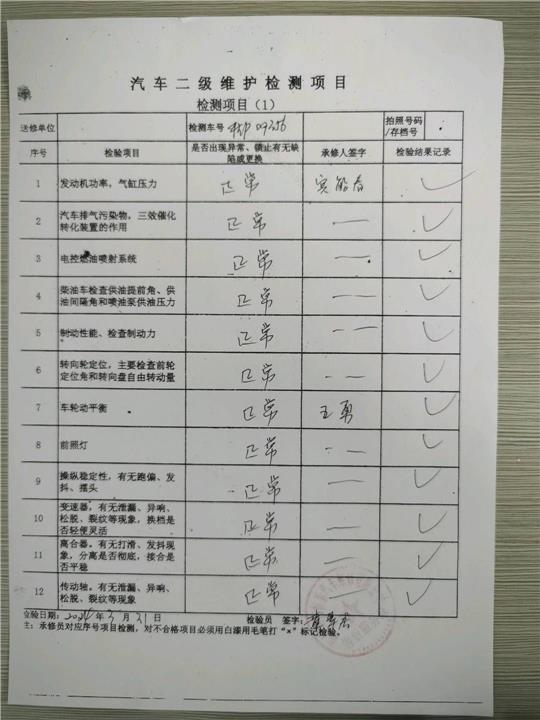 汽车二级维护检测项目
检测项目（1）
送修单位 检测车号 09256 拍照号码/存档号
序号 检验项目 是否出现异常、锁止有无缺陷或更换 承修人签字 检验结果记录
1 发动机功率，气缸压力 正常 ✓
2 汽车排气污染物，三效催化转化装置的作用 正常 — — ✓
3 电控燃油喷射系统 正常 — — ✓
4 柴油车检查供油提前角、供油间隔角和喷油泵供油压力 正常 — — ✓
5 制动性能、检查制动力 正常 — — ✓
6 转向轮定位，主要检查前轮定位角和转向盘自由转动量 正常 — — ✓
7 车轮动平衡 正常 王勇 ✓
8 前照灯 正常 — — ✓
9 操纵稳定性，有无跑偏、发抖、摆头 正常 — — ✓
10 变速器，有无泄漏、异响、松脱、裂纹等现象，换档是否轻便灵活 正常 — — ✓
11 离合器，有无打滑、发抖现象，分离是否彻底，接合是否平稳 正常 — — ✓
12 传动轴，有无泄漏、异响、松脱、裂纹等现象 正常 — — ✓
验日期：年3月31日 检验员 签字：
注：承修员对应序号项目检测，对不合格项目必须用白漆用毛笔打“×”标记检验。